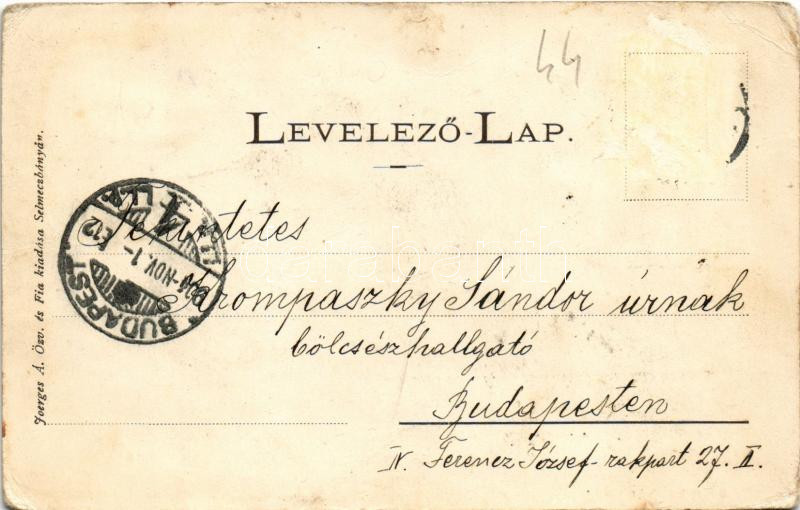 44
LEVELEZŐ-LAP.
Tekintetes
Krompaszky Sándor úrnak
bölcsészhallgató
Budapesten
IV. Ferencz József-rakpart 27. II.
Joerges Á. Özv. és Fia kiadása Selmeczbányán.
BUDAPEST
NOV. 1